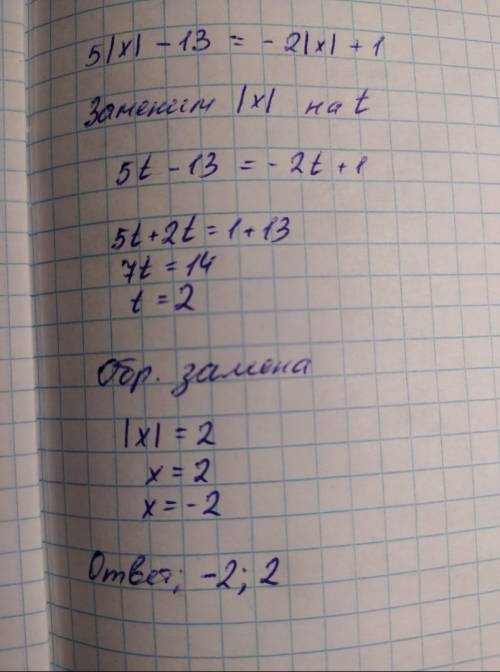 5|x| - 13 = - 2|x| + 1
Заменим |x| на t
5t - 13 = - 2t + 1
5t + 2t = 1 + 13
7t = 14
t = 2
Обр. замена
|x| = 2
x = 2
x = - 2
Ответ; -2; 2